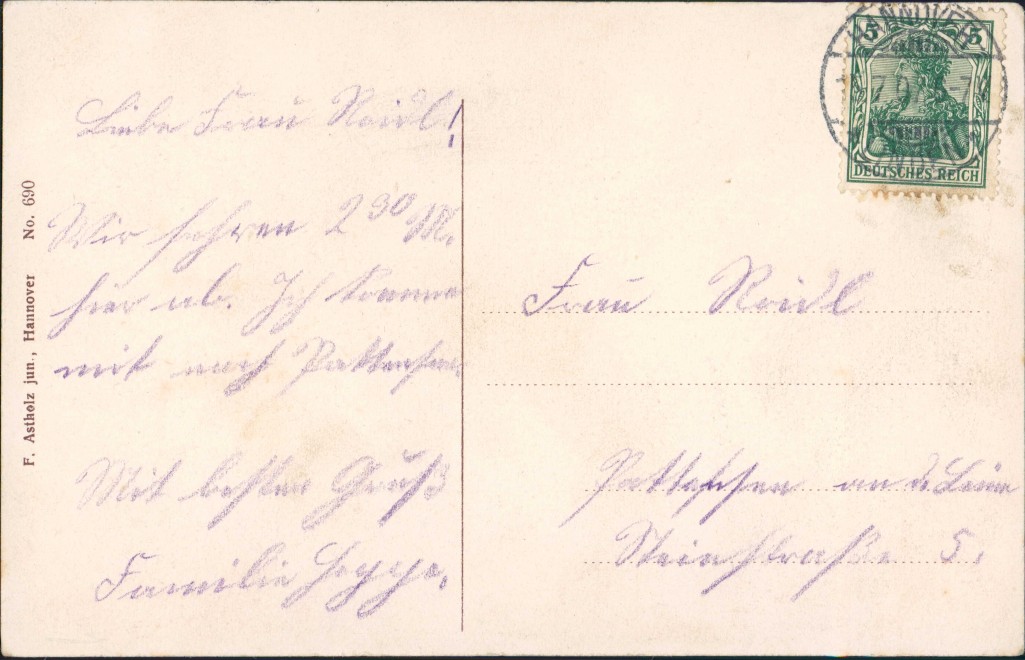 F. Astholz jun., Hannover No. 690
Liebe Frau Reidl!
Wir fahren 2³⁰ M.
hier ab. Ich komme
mit nach Pattensen.
Mit besten Gruß
Familie Hoppe.
HANNOVER
5 5
DEUTSCHES REICH
Frau Reidl
Pattensen an d. Leine
Steinstraße 5.